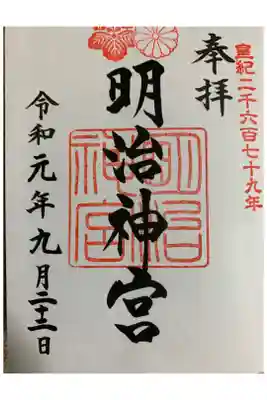 皇紀二千六百七十九年
奉拝
明治神宮
明治
神宮
令和元年九月二十二日